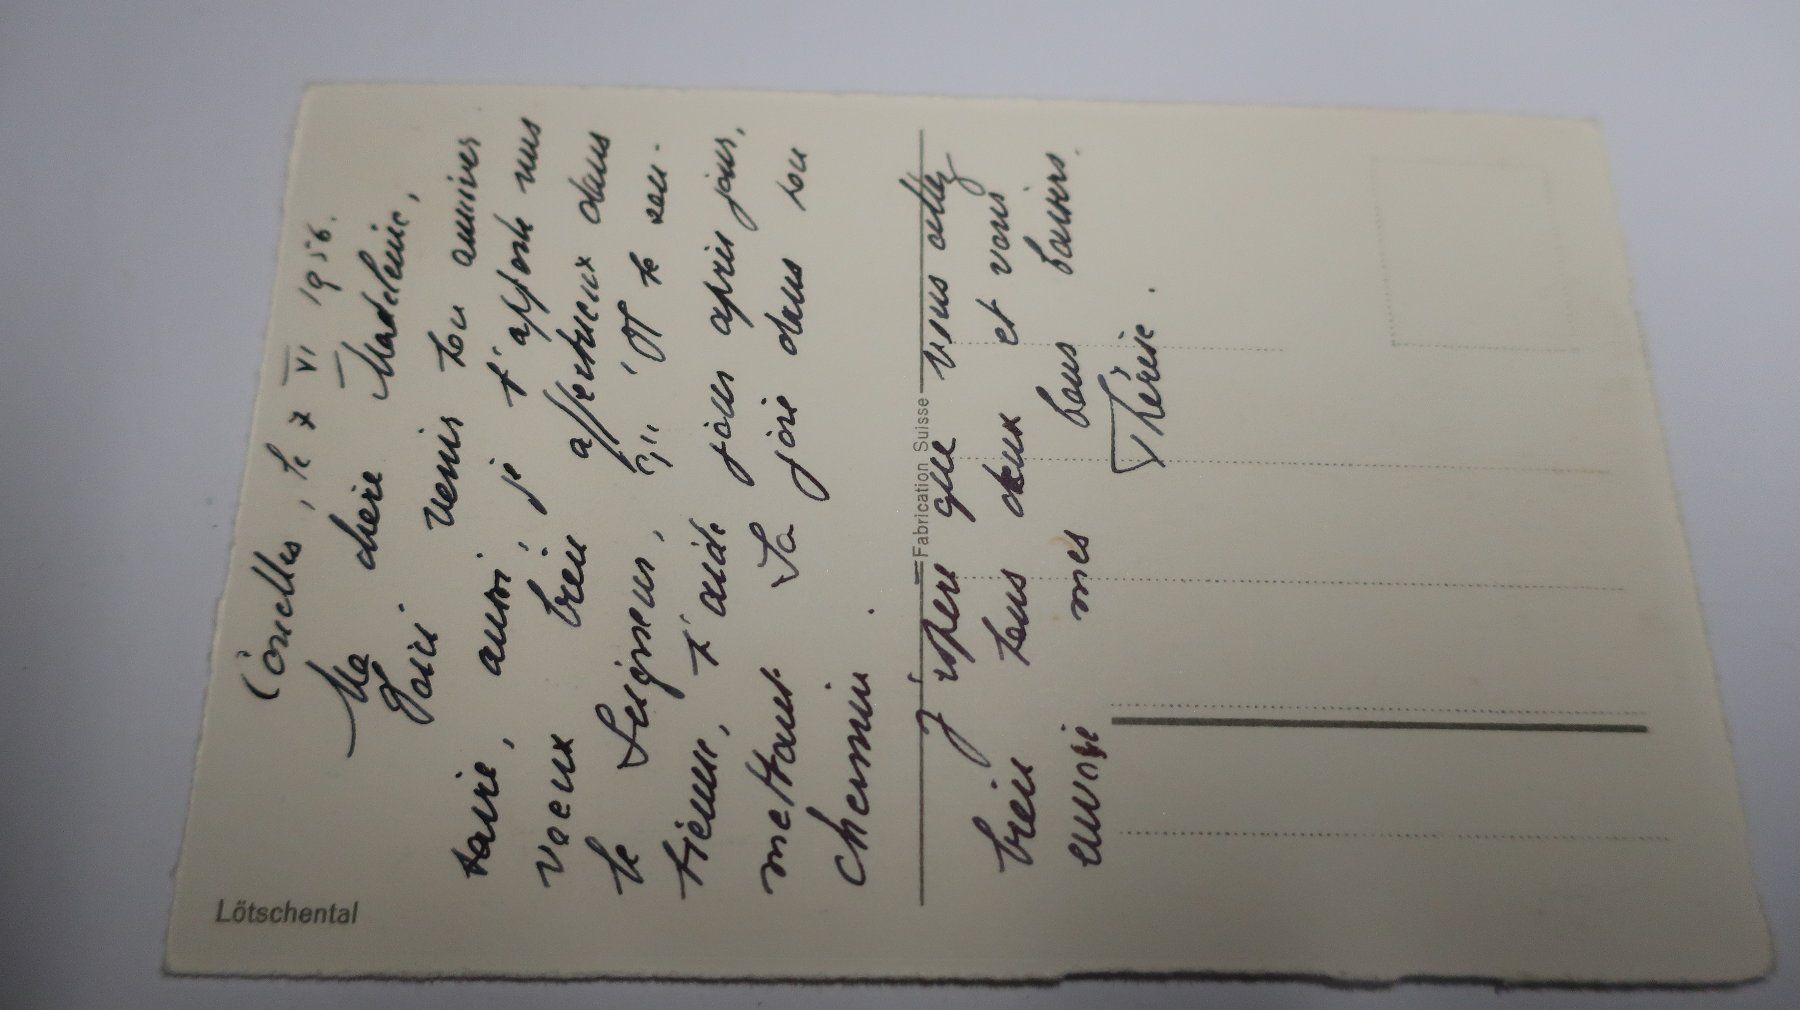 Lötschental
, le 7 VI 1956.
Ma chère Madeleine,
Voici venir ton anniver
saire, aussi, je t'apporte mes
voeux bien affectueux dans
le Seigneur, qu'Il te sou-
tienne, t'aide jour après jour,
mettant Sa joie dans ton
chemin.
Fabrication Suisse
J'espère que vous allez
bien tous deux et vous
envoie mes bons baisers.
Thérèse.